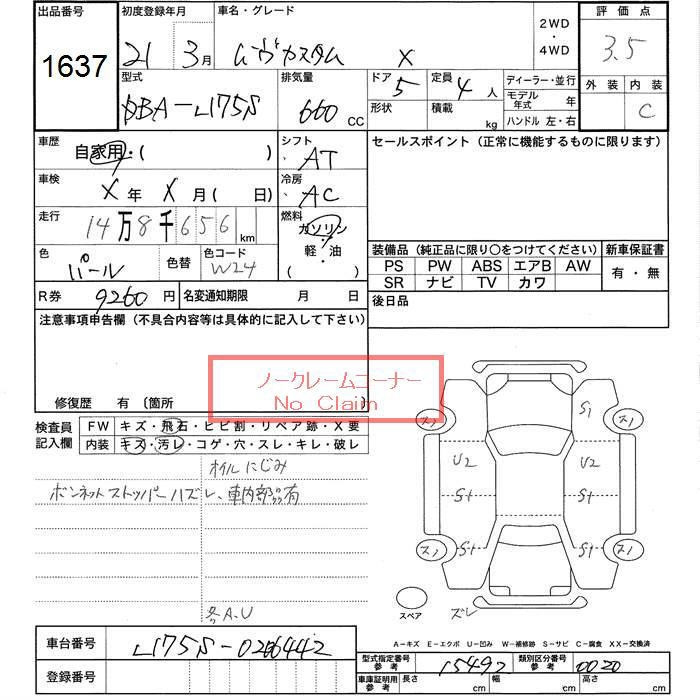 出品番号 初度登録年月 車名・グレード 評価点
1637 21 年 3月 ムーヴカスタム X 2WD・4WD 3.5
型式 排気量 ドア 5 定員 4人 ディーラー・並行 外装 内装
DBA-L175S 660 CC 形状 積載 kg モデル年式 年 C
ハンドル 左・右
車歴 シフト セールスポイント（正常に機能するものに限ります）
自家用・( ) AT
車検 冷房
X年 X月（ 日） AC
走行 燃料
14万8千656km ガソリン
軽・油
( )
色 色替 色コード 装備品（純正品に限り○をつけてください） 新車保証書
パール W24 PS PW ABS エアB AW 有・無
SR ナビ TV カワ
R券 9260円 名変通知期限 月 日 後日品
注意事項申告欄（不具合内容等は具体的に記入して下さい）
ノークレームコーナー
No Claim
修復歴 有（箇所
検査員記入欄 FW キズ・飛石・ヒビ割・リペア跡・X要
内装 キズ・汚レ・コゲ・穴・スレ・キレ・破レ
オイルにじみ
ボンネットストッパーハズレ、車内部品有
各A.U
S1
スノ スノ
U2 U2
S1 S1
スノ S1 S1 スノ
スペア ズレ
A－キズ E－エクボ U－凹み W－補修跡 S－サビ C－腐食 XX－交換済
車台番号 L175S-0266442
登録番号
型式指定番号参考 15492 類別区分番号参考 0020
車庫証明用参考 長さ cm 幅 cm 高さ cm